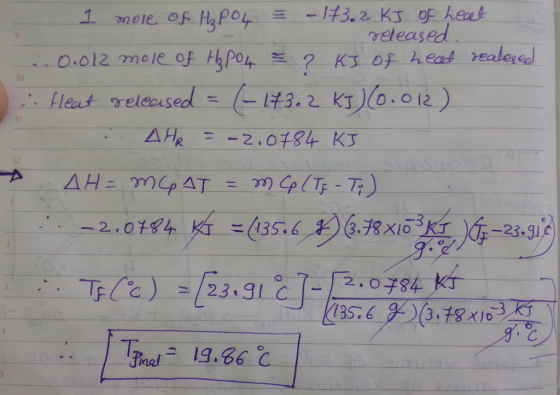 1 mole of H₃PO₄ ≡ -173.2 KJ of heat
released.
∴ 0.012 mole of H₃PO₄ ≡ ? KJ of heat realesed
∴ Heat released = (-173.2 KJ)(0.012)
∴ ΔH_R = -2.0784 KJ
→ ΔH = mCpΔT = mCp(T_f - T_i)
∴ -2.0784 KJ = (135.6 g)(3.78×10⁻³ KJ/g.°C)(T_f - 23.91°C)
∴ T_f(°C) = [23.91°C] - [2.0784 KJ/(135.6 g)(3.78×10⁻³ KJ/g.°C)]
∴ T_final = 19.86°C